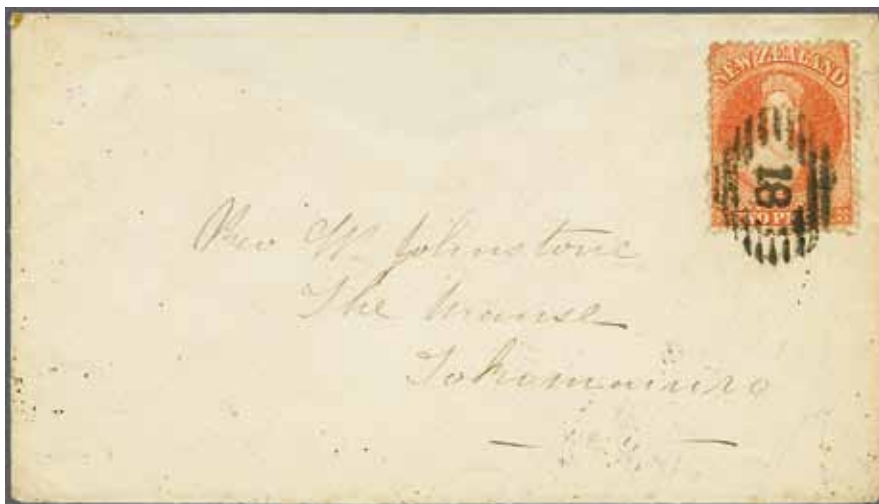 NEW ZEALAND
18
TWO PE
Rev W. Johnstone
The Manse
Tokomairiro